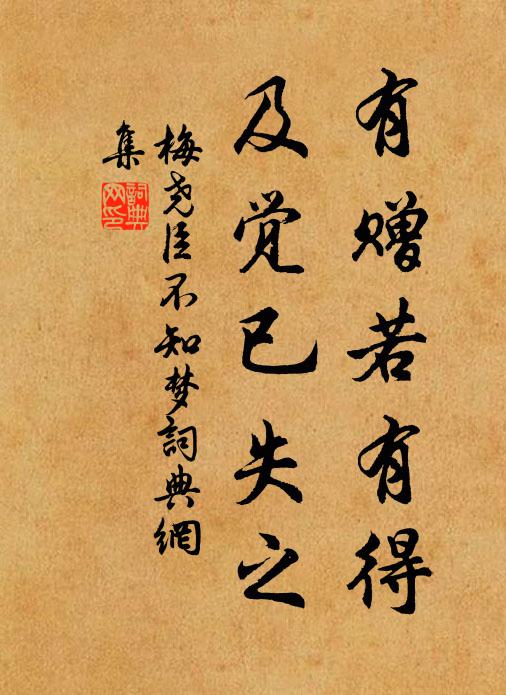 有赠若有得
及觉已失之
梅尧臣不知梦词典網
集
詞典网印